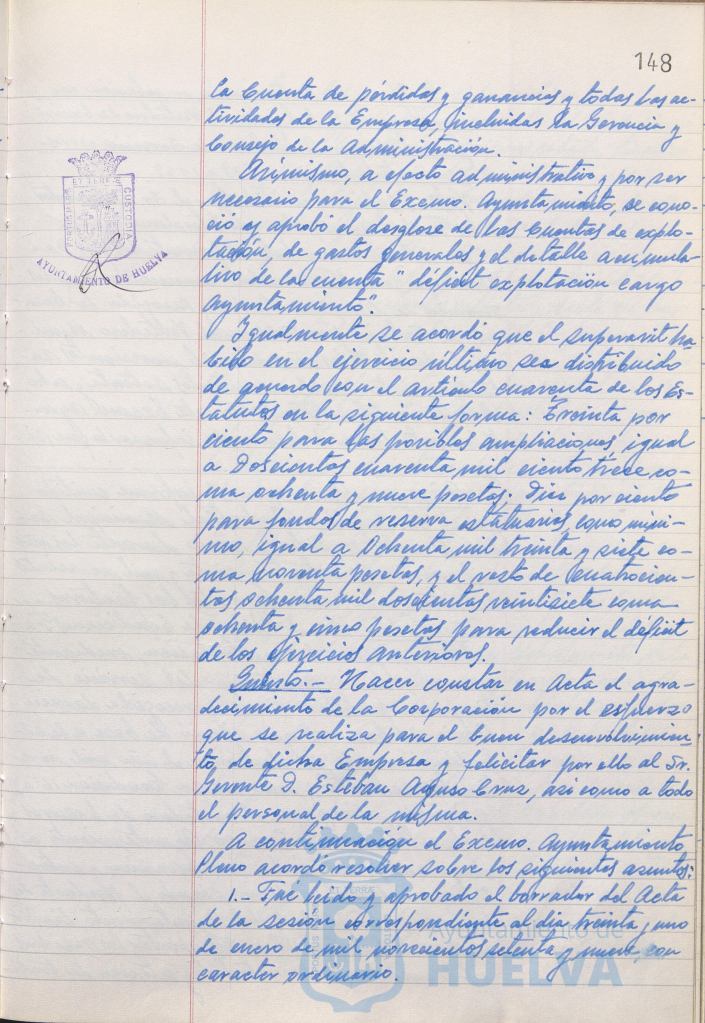 148
la Cuenta de pérdidas y ganancias y todas las ac-
tividades de la Empresa, incluidas la Gerencia y
Consejo de la Administración.
Asimismo, a efecto administrativo y por ser
necesario para el Excmo. Ayuntamiento, se cono-
ció y aprobó el desglose de las Cuentas de explo-
tación, de gastos generales y el detalle acumula-
tivo de la cuenta "déficit explotación cargo
Ayuntamiento".
Igualmente se acordó que el superavit ha-
bido en el ejercicio último sea distribuido
de acuerdo con el artículo cuarenta de los Es-
tatutos en la siguiente forma: Treinta por
ciento para las posibles ampliaciones, igual
a Doscientas cuarenta mil ciento trece co-
ma ochenta y nueve pesetas; Diez por ciento
para fondos de reserva estatuarios, como míni-
mo, igual a Ochenta mil treinta y siete co-
ma noventa pesetas, y el resto de cuatrocien-
tas ochenta mil doscientas veintisiete coma
ochenta y cinco pesetas para reducir el déficit
de los ejercicios anteriores.
Quinto.- Hacer constar en Acta el agra-
decimiento de la Corporación por el esfuerzo
que se realiza para el buen desenvolvimien-
to de dicha Empresa y felicitar por ello al Sr.
Gerente D. Esteban Cruz, así como a todo
el personal de la misma.
A continuación el Excmo. Ayuntamiento
Pleno acordó resolver sobre los siguientes asuntos:
1.- Fue leido y aprobado el borrador del Acta
de la sesión correspondiente al día treinta y uno
de enero de mil novecientos setenta y nueve, con
caracter ordinario.
CUSTODIA
AYUNTAMIENTO DE HUELVA
Ayuntamiento de
HUELVA